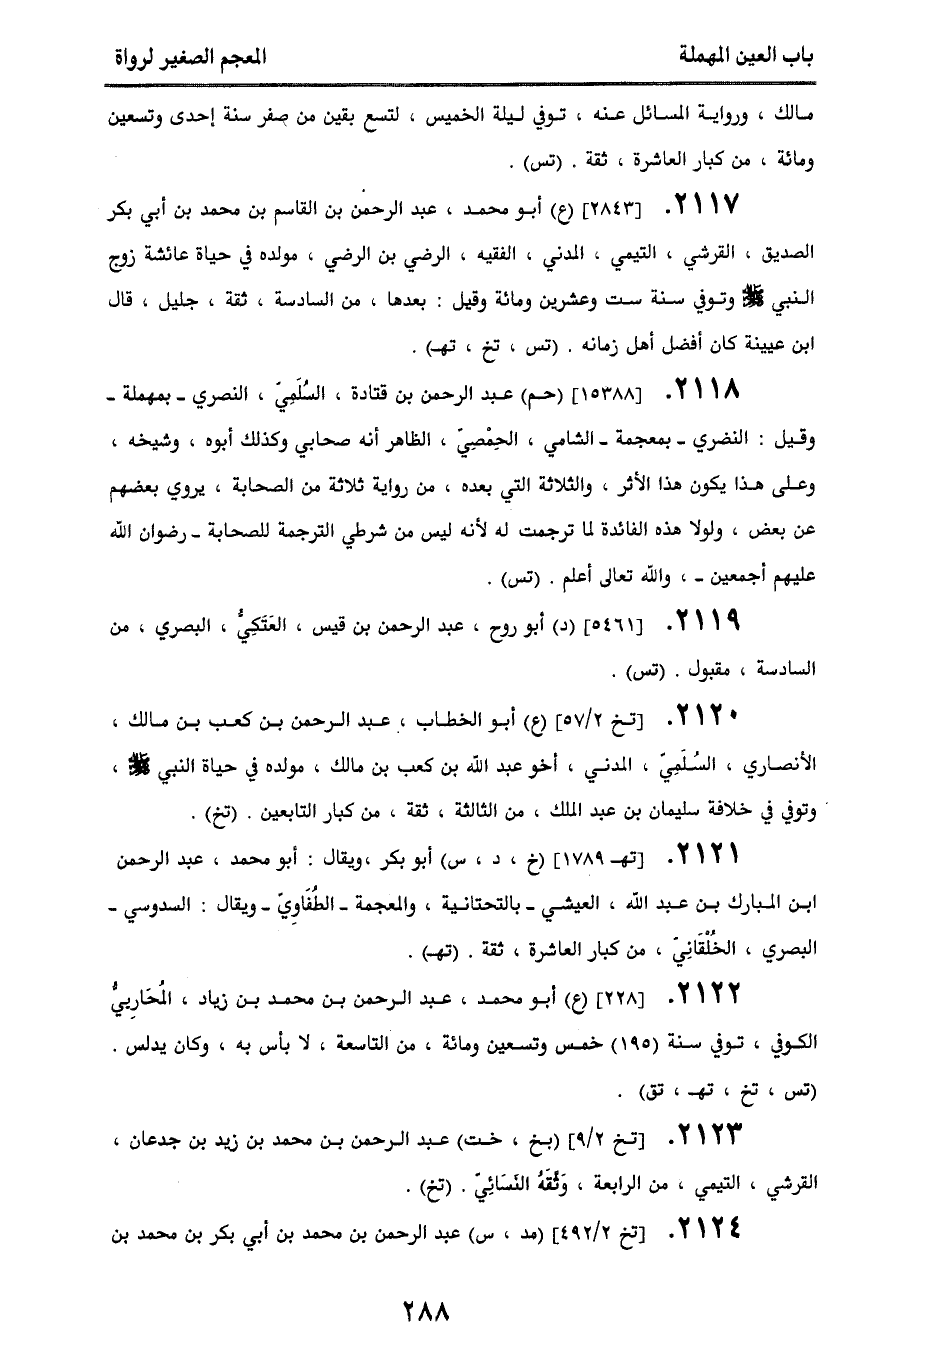 باب العين المهملة
المعجم الصغير لرواة
مالك ، ورواية المسائل عنه ، توفي ليلة الخميس ، لتسع بقين من صفر سنة إحدى وتسعين
ومائة ، من كبار العاشرة ، ثقة . (تس) .
٢١١٧. [٢٨٤٣] (ع) أبو محمد ، عبد الرحمن بن القاسم بن محمد بن أبي بكر
الصديق ، القرشي ، التيمي ، المدني ، الفقيه ، الرضي بن الرضي ، مولده في حياة عائشة زوج
النبي ﷺ وتوفي سنة ست وعشرين ومائة وقيل : بعدها ، من السادسة ، ثقة ، جليل ، قال
ابن عيينة كان أفضل أهل زمانه . (تس ، تخ ، تهـ) .
٢١١٨. [١٥٣٨٨] (حم) عبد الرحمن بن قتادة ، السُلَمِيّ ، النصري ـ بمهملة ـ
وقيل : النضري ـ بمعجمة ـ الشامي ، الحِمْصِيّ ، الظاهر أنه صحابي وكذلك أبوه ، وشيخه ،
وعلى هذا يكون هذا الأثر ، والثلاثة التي بعده ، من رواية ثلاثة من الصحابة ، يروي بعضهم
عن بعض ، ولولا هذه الفائدة لما ترجمت له لأنه ليس من شرطي الترجمة للصحابة ـ رضوان الله
عليهم أجمعين ـ ، والله تعالى أعلم . (تس) .
٢١١٩. [٥٤٦١] (د) أبو روح ، عبد الرحمن بن قيس ، العَتَكِيُّ ، البصري ، من
السادسة ، مقبول . (تس) .
٢١٢٠. [تخ ٥٧/٢] (ع) أبو الخطاب ، عبد الرحمن بن كعب بن مالك ،
الأنصاري ، السُلَمِيّ ، المدني ، أخو عبد الله بن كعب بن مالك ، مولده في حياة النبي ﷺ ،
وتوفي في خلافة سليمان بن عبد الملك ، من الثالثة ، ثقة ، من كبار التابعين . (تخ) .
٢١٢١. [تهـ ١٧٨٩] (خ ، د ، س) أبو بكر ،ويقال : أبو محمد ، عبد الرحمن
ابن المبارك بن عبد الله ، العيشي ـ بالتحتانية ، والمعجمة ـ الطُفَاوِيّ ـ ويقال : السدوسي ـ
البصري ، الخُلْقَانِيّ ، من كبار العاشرة ، ثقة . (تهـ) .
٢١٢٢. [٢٢٨] (ع) أبو محمد ، عبد الرحمن بن محمد بن زياد ، المُحَارِبيُّ
الكوفي ، توفي سنة (١٩٥) خمس وتسعين ومائة ، من التاسعة ، لا بأس به ، وكان يدلس .
(تس ، تخ ، تهـ ، تق) .
٢١٢٣. [تخ ٩/٢] (بخ ، خت) عبد الرحمن بن محمد بن زيد بن جدعان ،
القرشي ، التيمي ، من الرابعة ، وَثَّقَهُ النَسَائِيّ . (تخ) .
٢١٢٤. [تخ ٤٩٢/٢] (مد ، س) عبد الرحمن بن محمد بن أبي بكر بن محمد بن
٢٨٨